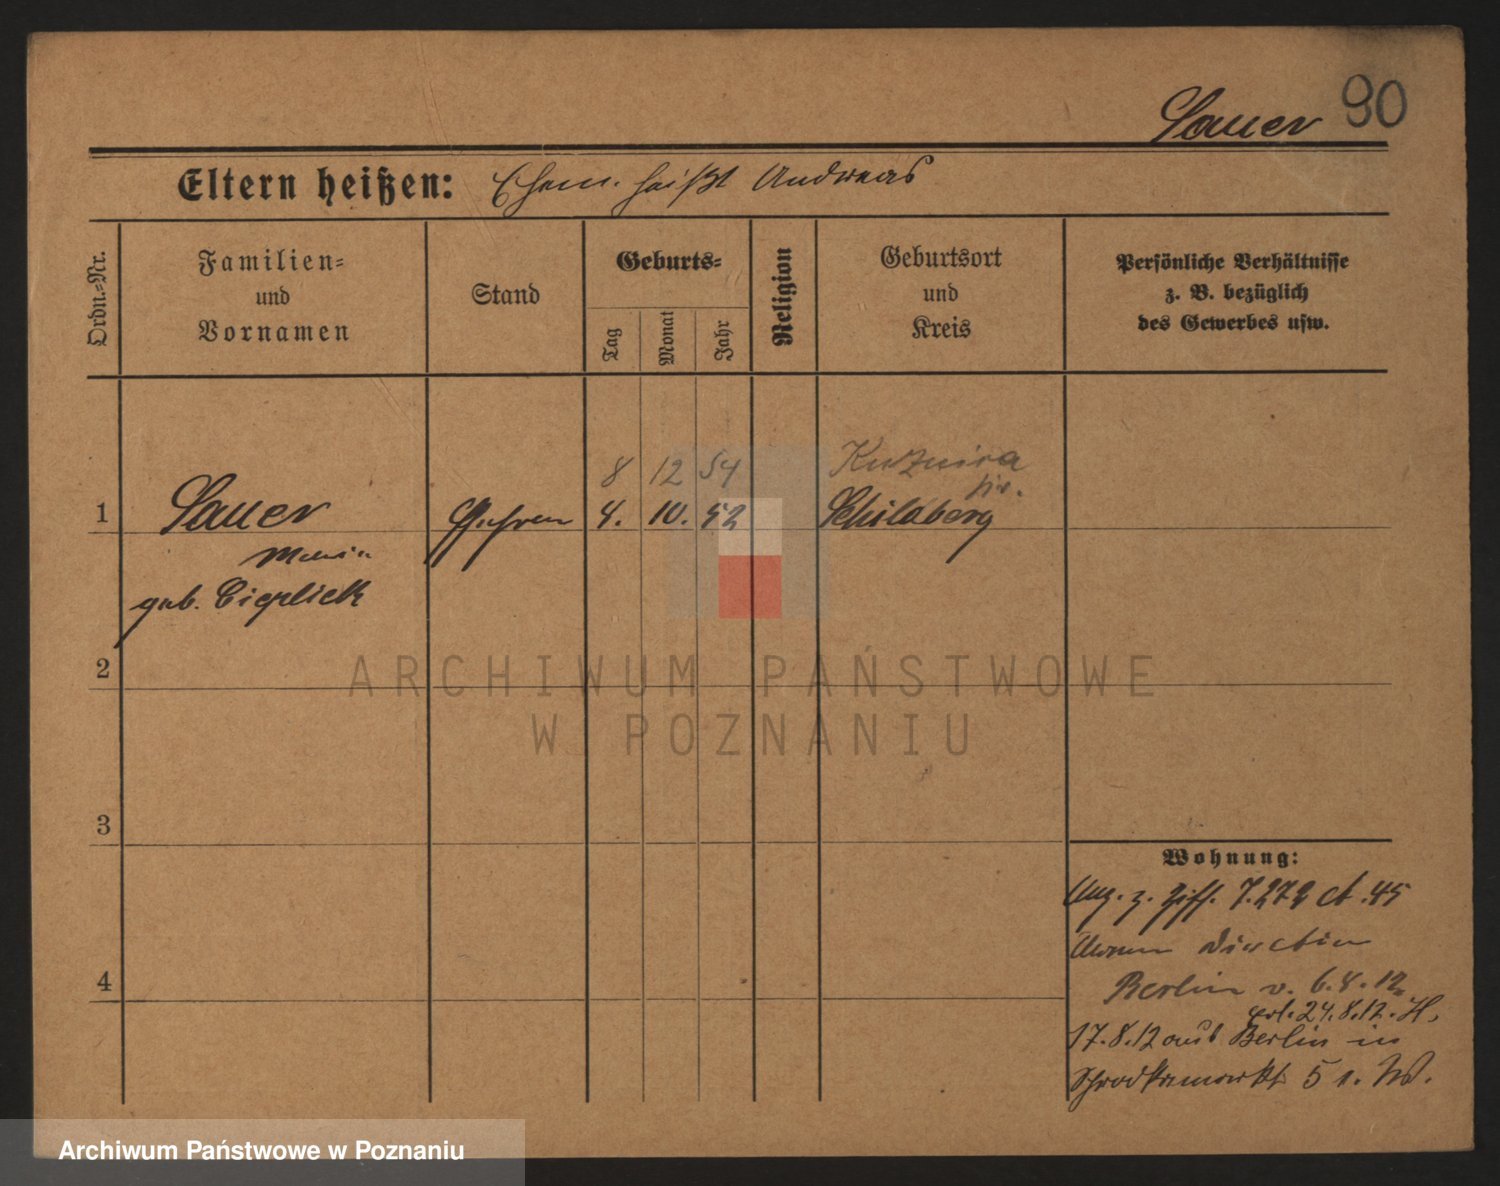 Sauer 90
Eltern heißen: Ehem. heißt Andreas
Ordn.-Nr.
Familien-
und
Vornamen
Stand
Geburts-
Tag
Monat
Jahr
Religion
Geburtsort
und
Kreis
Persönliche Verhältnisse
z. B. bezüglich
des Gewerbes usw.
8 12 54 Kuznica
1 Sauer 4. 10. 52 Schildberg
Maria
geb. Cieplick
2
ARCHIWUM PAŃSTWOWE
W POZNANIU
3
Wohnung:
Anz. z. Ziff. 7.272 A. 45
Armen Direction
4
Berlin v. 6.8.12
erl. 24.8.12. H.
17.8.12 aus Berlin in
Schrodkamarkt 5 b. W.
Archiwum Państwowe w Poznaniu